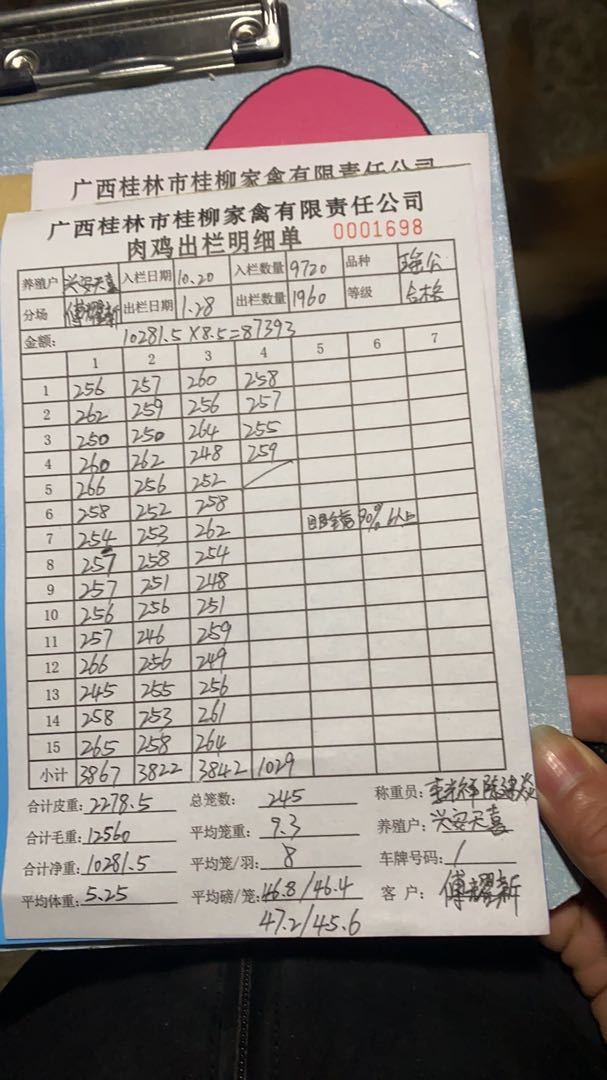 广西桂林市桂柳家禽有限责任公司
广西桂林市桂柳家禽有限责任公司
肉鸡出栏明细单 0001698
养殖户 兴安天喜 入栏日期 10.20 入栏数量 9720 品种 瑶公
分场 傅耀新 出栏日期 1.28 出栏数量 1960 等级 合格
金额: 10281.5×8.5=87393
1 2 3 4 5 6 7
1 256 257 260 258
2 262 259 256 257
3 250 250 264 255
4 260 262 248 259
5 266 256 252
6 258 252 258
7 254 253 262 90%以上
8 257 258 254
9 257 251 248
10 256 256 251
11 257 246 259
12 266 256 249
13 245 255 256
14 258 253 261
15 265 258 264
小计 3867 3822 3842 1029
合计皮重: 2278.5 总笼数: 245 称重员:
合计毛重: 12560 平均笼重: 9.3 养殖户: 兴安天喜
合计净重: 10281.5 平均笼/羽: 8 车牌号码: /
平均体重: 5.25 平均磅/笼: 46.8/46.4 客户: 傅耀新
47.2/45.6